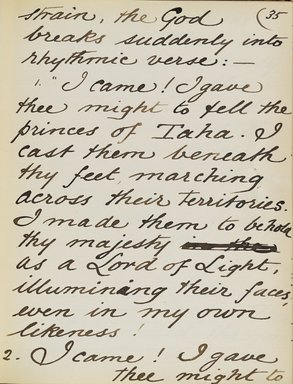 strain, the God (35
breaks suddenly into
rhythmic verse:—
1. "I came! I gave
thee might to fell the
princes of Taha. I
cast them beneath
thy feet, marching
across their territories.
I made them to behold
thy majesty
as a Lord of Light,
illumining their faces,
even in my own
likeness!
2. I came! I gave
thee might to